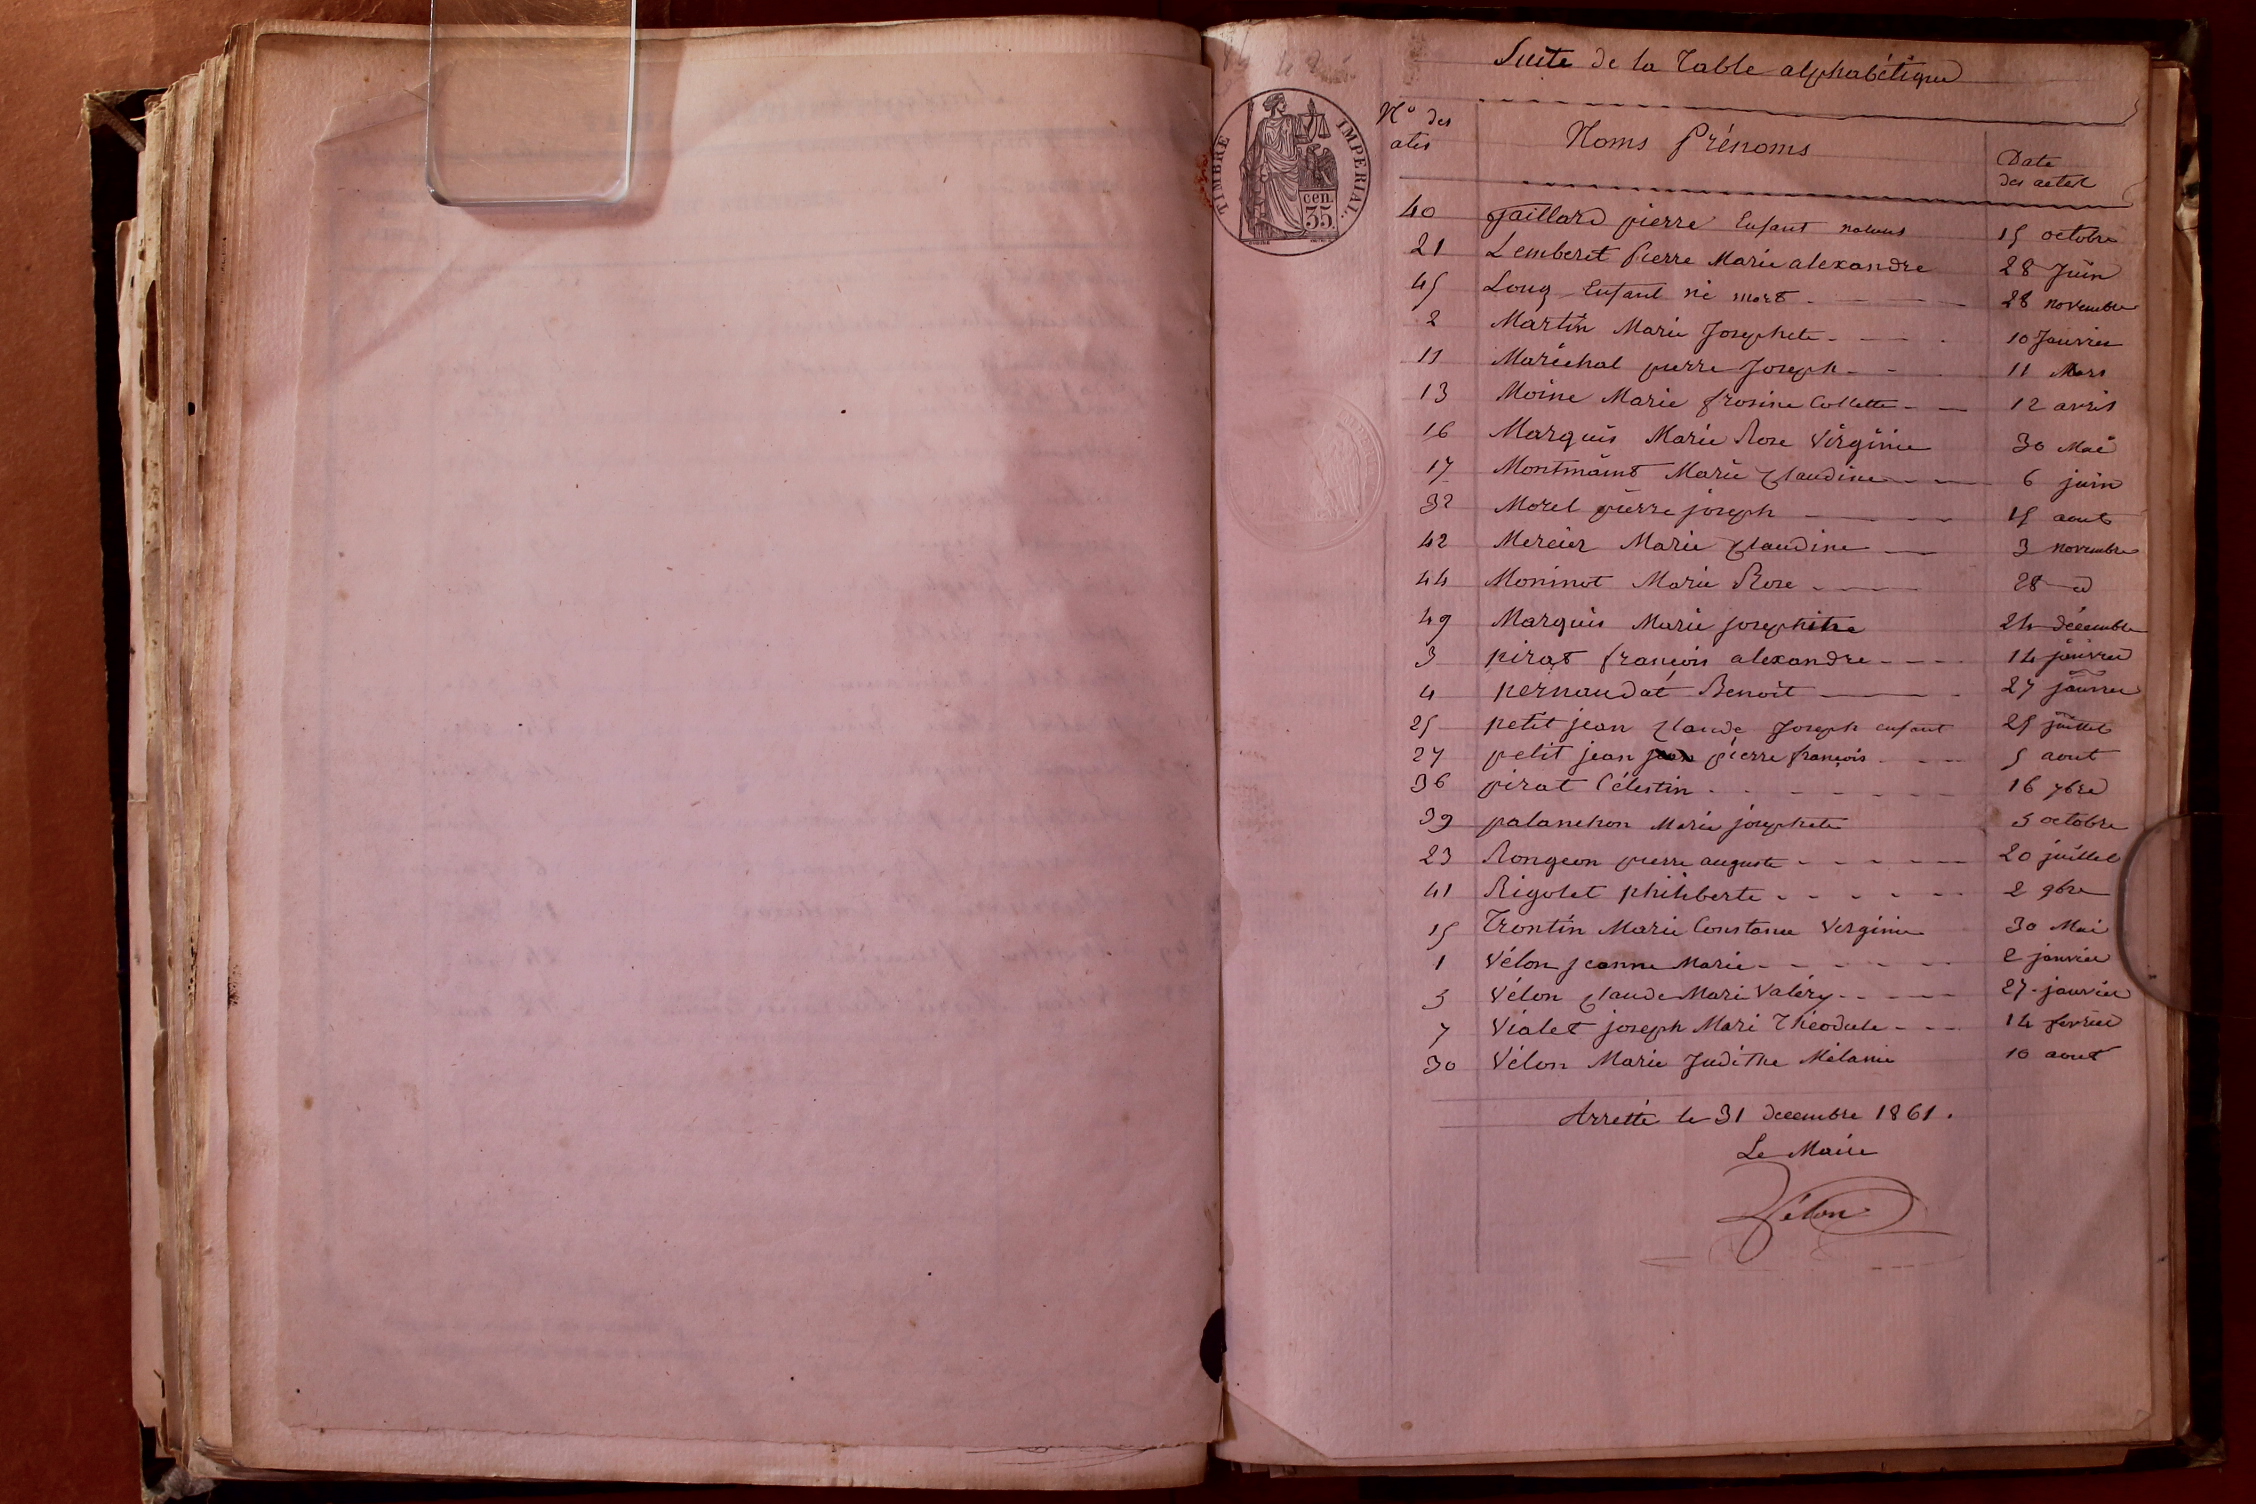 Suite de la Table alphabétique
TIMBRE IMPERIAL
cen.
35.
N° des
actes
Noms Prénoms
Date
des actes
40 Gaillard pierre Enfant 15 octobre
21 Lemberet Pierre Marie alexandre 28 Juin
45 Enfant né mort 28 novembre
2 Martin Marie Josephete 10 Janvier
11 Maréchal pierre Joseph 11 Mars
13 Moine Marie frosine Collette 12 avril
16 Marquis Marie Rose Virginie 30 Mai
17 Montmaint Marie Claudine 6 juin
32 Morel pierre joseph 15 aout
42 Mercier Marie Claudine 3 novembre
44 Moninot Marie Rose 28 id
49 Marquis Marie josephine 24 décembre
3 pirat françois alexandre 14 janvier
4 pernaudat Benoit 27 janvier
25 petit jean Claude Joseph enfant 25 juillet
27 petit jean pierre françois 5 aout
36 pirat Célestin 16 7bre
39 palanchon Marie josephete 5 octobre
23 Rongeon pierre auguste 20 juillet
41 Rigolet philiberte 2 9bre
15 Trontin Marie Constance Verginie 30 Mai
1 Vélon jeanne Marie 2 janvier
5 Vélon Claude Mari Valéry 27 janvier
7 Vialet joseph Mari Théodule 14 fevrier
30 Vélon Marie Judithe Mélanie 10 aout
Arretté le 31 decembre 1861.
Le Maire
Vélon